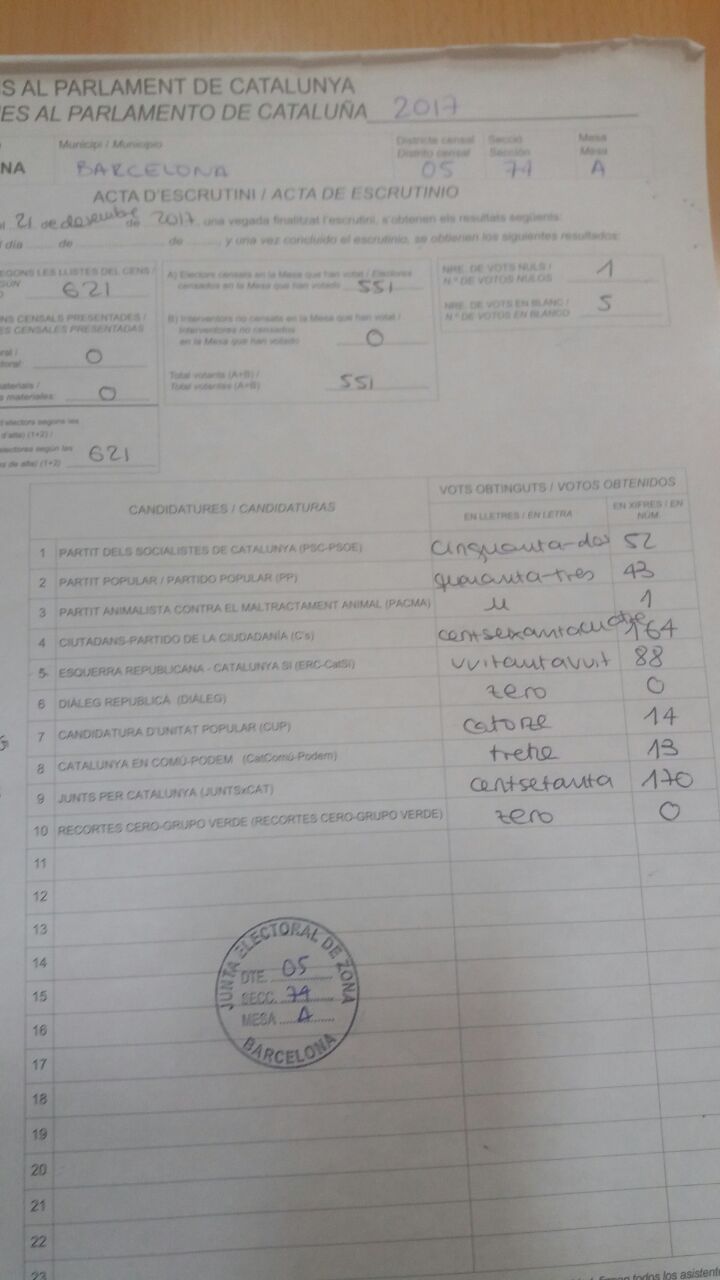 S AL PARLAMENT DE CATALUNYA
ES AL PARLAMENTO DE CATALUÑA 2017
Municipi / Municipio
Districte censal
Distrito censal
Secció
Sección
Mesa
Mesa
NA BARCELONA 05 74 A
ACTA D'ESCRUTINI / ACTA DE ESCRUTINIO
21 de desembre de 2017, una vegada finalitzat l'escrutini, s'obtenen els resultats següents:
día ........ de ........ de ........, y una vez concluido el escrutinio, se obtienen los siguientes resultados:
EGONS LES LLISTES DEL CENS /
GÚN
621
NS CENSALS PRESENTADES /
ES CENSALES PRESENTADAS
ral /
toral: 0
aterials /
s materiales: 0
d'electors segons les
d'alta) (1+2) /
electores según las
s de alta) (1+2) 621
A) Electors censats en la Mesa que han votat / Electores
censados en la Mesa que han votado 551
B) Interventors no censats en la Mesa que han votat /
Interventores no censados
en la Mesa que han votado 0
Total votants (A+B) /
Total votantes (A+B) 551
NRE. DE VOTS NULS /
N.º DE VOTOS NULOS 1
NRE. DE VOTS EN BLANC /
N.º DE VOTOS EN BLANCO 5
CANDIDATURES / CANDIDATURAS
VOTS OBTINGUTS / VOTOS OBTENIDOS
EN LLETRES / EN LETRA
EN XIFRES / EN
NÚM.
1 PARTIT DELS SOCIALISTES DE CATALUNYA (PSC-PSOE) cinquanta-dos 52
2 PARTIT POPULAR / PARTIDO POPULAR (PP) quaranta-tres 43
3 PARTIT ANIMALISTA CONTRA EL MALTRACTAMENT ANIMAL (PACMA) u 1
4 CIUTADANS-PARTIDO DE LA CIUDADANÍA (C's) centseixantaquatre 164
5 ESQUERRA REPUBLICANA - CATALUNYA SÍ (ERC-CatSí) vvitantavuit 88
6 DIÀLEG REPUBLICÀ (DIÀLEG) zero 0
7 CANDIDATURA D'UNITAT POPULAR (CUP) catorze 14
8 CATALUNYA EN COMÚ-PODEM (CatComú-Podem) tretze 13
9 JUNTS PER CATALUNYA (JUNTSxCAT) centsetanta 170
10 RECORTES CERO-GRUPO VERDE (RECORTES CERO-GRUPO VERDE) zero 0
11
12
13
14
15
16
17
18
19
20
21
22
23
JUNTA ELECTORAL DE ZONA
DTE. 05
SECC. 74
MESA A
BARCELONA
firman todos los asistente